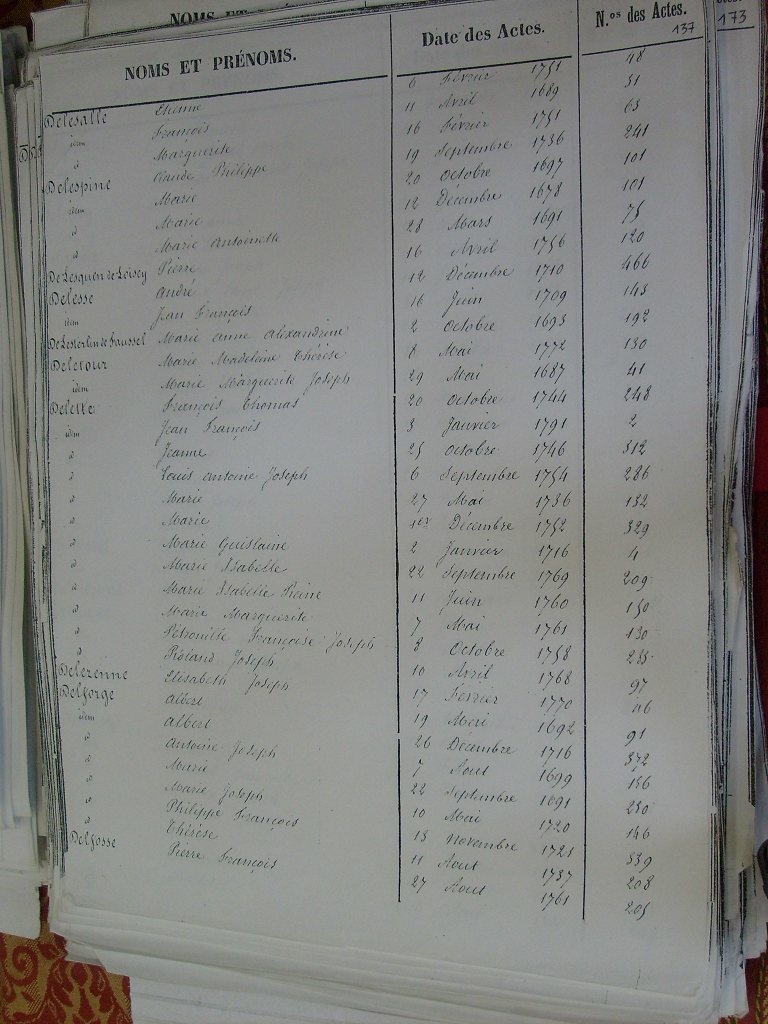 NOMS ET PRÉNOMS. Date des Actes. N.os des Actes.
137
173
Delesalle Etienne 6 Février 1751 48
idem François 11 Avril 1689 31
d Marguerite 16 Février 1751 63
Delespine Claude Philippe 19 Septembre 1736 241
idem Marie 20 Octobre 1697 101
d Marie 12 Décembre 1678 101
d Marie Antoinette 28 Mars 1691 75
De Lesquen de Loisey Pierre 16 Avril 1756 120
Delesse André 12 Décembre 1710 466
idem Jean François 16 Juin 1709 143
De Lesterlin de Saussel Marie anne alexandrine 2 Octobre 1693 192
Deletour Marie Madeleine Thérèse 8 Mai 1772 130
idem Marie Marguerite Joseph 29 Mai 1687 41
Delette François Thomas 20 Octobre 1744 248
idem Jean François 3 Janvier 1791 2
d Jeanne 25 octobre 1746 312
d Louis antoine Joseph 6 Septembre 1754 286
d Marie 27 Mai 1736 132
d Marie 1er Décembre 1752 329
d Marie Guislaine 2 Janvier 1716 4
d Marie Isabelle 22 Septembre 1769 209
d Marie Isabelle Reine 11 Juin 1760 150
d Marie Marguerite 7 Mai 1761 130
d Pétronille Françoise Joseph 8 Octobre 1758 235
d Roland Joseph 10 Avril 1768 97
Delezenne Elisabeth Joseph 17 Février 1770 46
Delforge Albert 19 1692 91
idem Albert 26 Décembre 1716 372
d Antoine Joseph 7 Aout 1699 156
d Marie 22 Septembre 1691 230
d Marie Joseph 10 Mai 1720 146
d Philippe François 13 novembre 1721 339
d Thérèse 11 Aout 1737 208
Delfosse Pierre François 27 Aout 1761 205